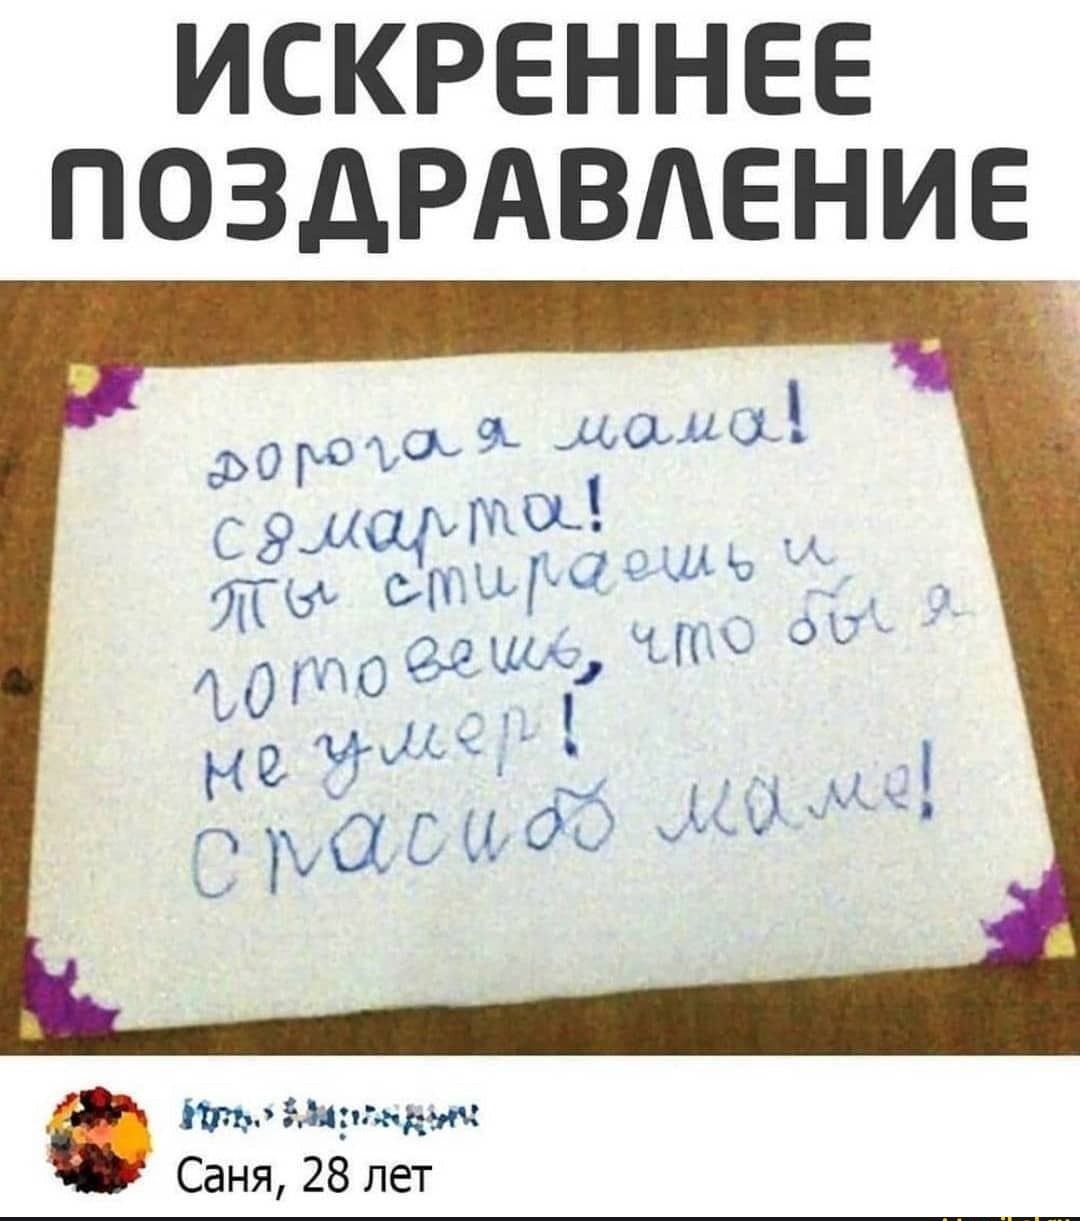 ИСКРЕННЕЕ
ПОЗДРАВЛЕНИЕ
дорогая мама!
с 8 марта!
ты стираешь и
готовешь, что бы я
не умер!
Спасиб маме!
Саня, 28 лет